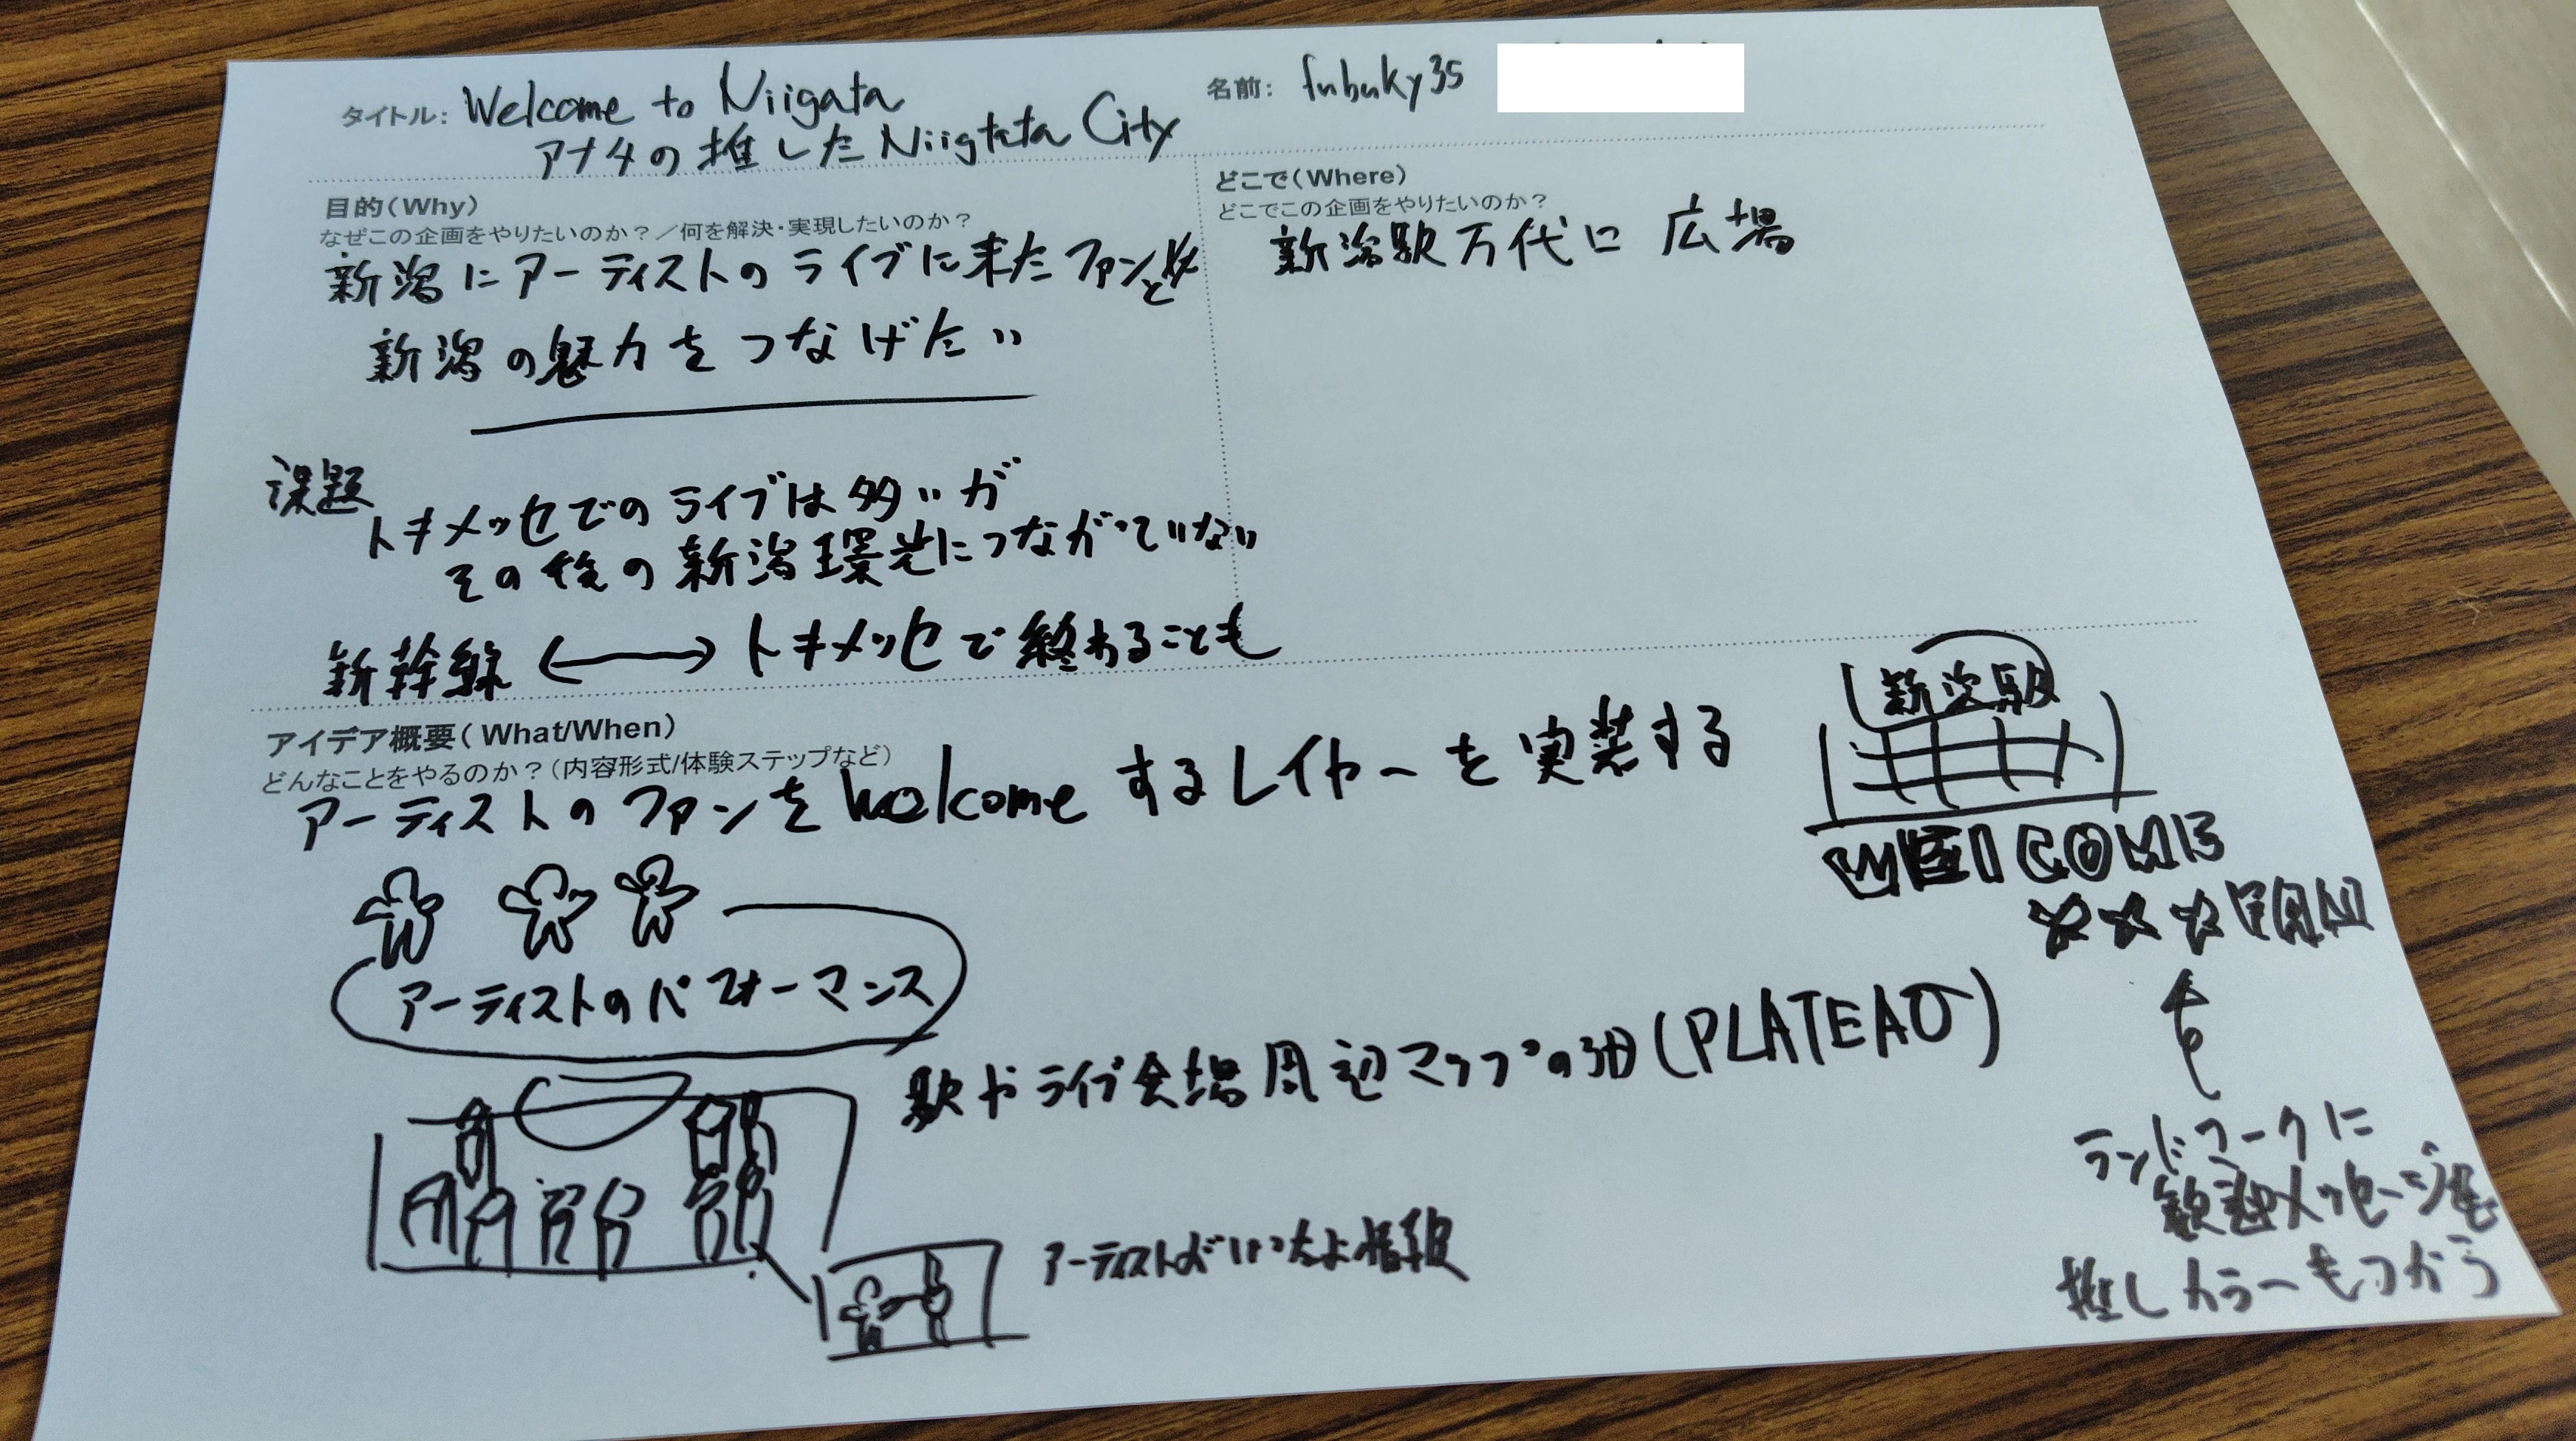 タイトル: Welcome to Niigata
アナタの推した Niigtata City
名前: fubuky35
目的(Why)
なぜこの企画をやりたいのか?／何を解決・実現したいのか?
新潟にアーティストのライブに来たファンと
新潟の魅力をつなげたい
どこで(Where)
どこでこの企画をやりたいのか?
新潟駅万代口 広場
課題
トキメッセでのライブは多いが
その後の新潟環光につながっていない
新幹線 ←→ トキメッセで終わることも
アイデア概要( What/When)
どんなことをやるのか?(内容形式/体験ステップなど)
アーティストのファンをwelcomeするレイヤーを実装する
アーティストのパフォーマンス
新潟駅
WELCOME
☆☆☆FAN
駅やライブ会場周辺マップの(PLATEAU)
アーティストがいったよ情報
ランドマークに
歓迎メッセージを
推しカラーもつかう